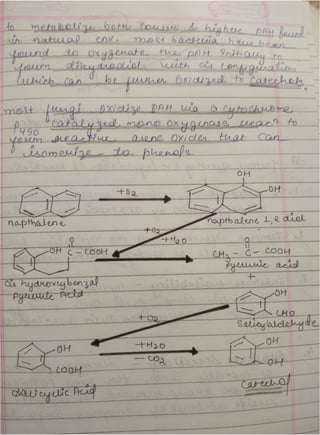 to metabolize both lower & higher PAH found
in natural env. most bacteria have been
found to oxygenate the PAH initially to
form dihydrodiol with cis configuration
which can be further oxidized to catechols.
most fungi oxidize PAH via a cytochrome
P450 catalyzed mono oxygenase reacn to
form reactive arene oxides that can
isomerize to phenols.
+O2
OH
OH
napthalene
napthalene 1,2 diol
+O2
+H2O
OH
O
C - COOH
CH3 - C - COOH
O
Pyruvic acid
+
cis hydroxybenzal
Pyruvic Acid
OH
CHO
+O2
Salicyaldehyde
OH
COOH
+H2O
- CO2
OH
OH
Salicyclic Acid
Catechol